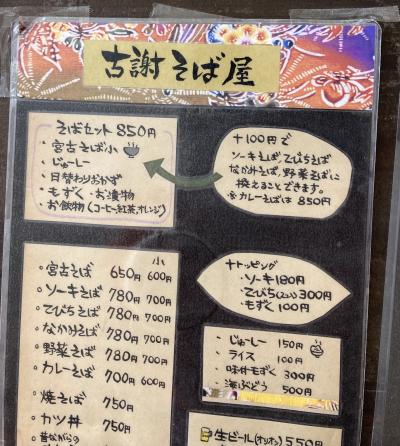 古謝そば屋
そばセット 850円
・宮古そば小
・じゅーしー
・日替わりおかず
・もずく・お漬物
・お飲物(コーヒー,紅茶,オレンジ)
+100円で
ソーキそば,てびちそば
なかみそば,野菜そばに
換えることできます。
※カレーそばは 850円
小
・宮古そば 650円 600円
・ソーキそば 780円 700円
・てびちそば 780円 700円
・なかみそば 780円 700円
・野菜そば 780円 700円
・カレーそば 700円 600円
・焼そば 750円
・カツ丼 750円
昔ながらの
+トッピング
・ソーキ180円
・てびち(2コ)300円
・もずく100円
・じゅーしー 150円
・ライス 100円
・味付もずく 300円
・海ぶどう 500円
生ビール(オリオン)550円